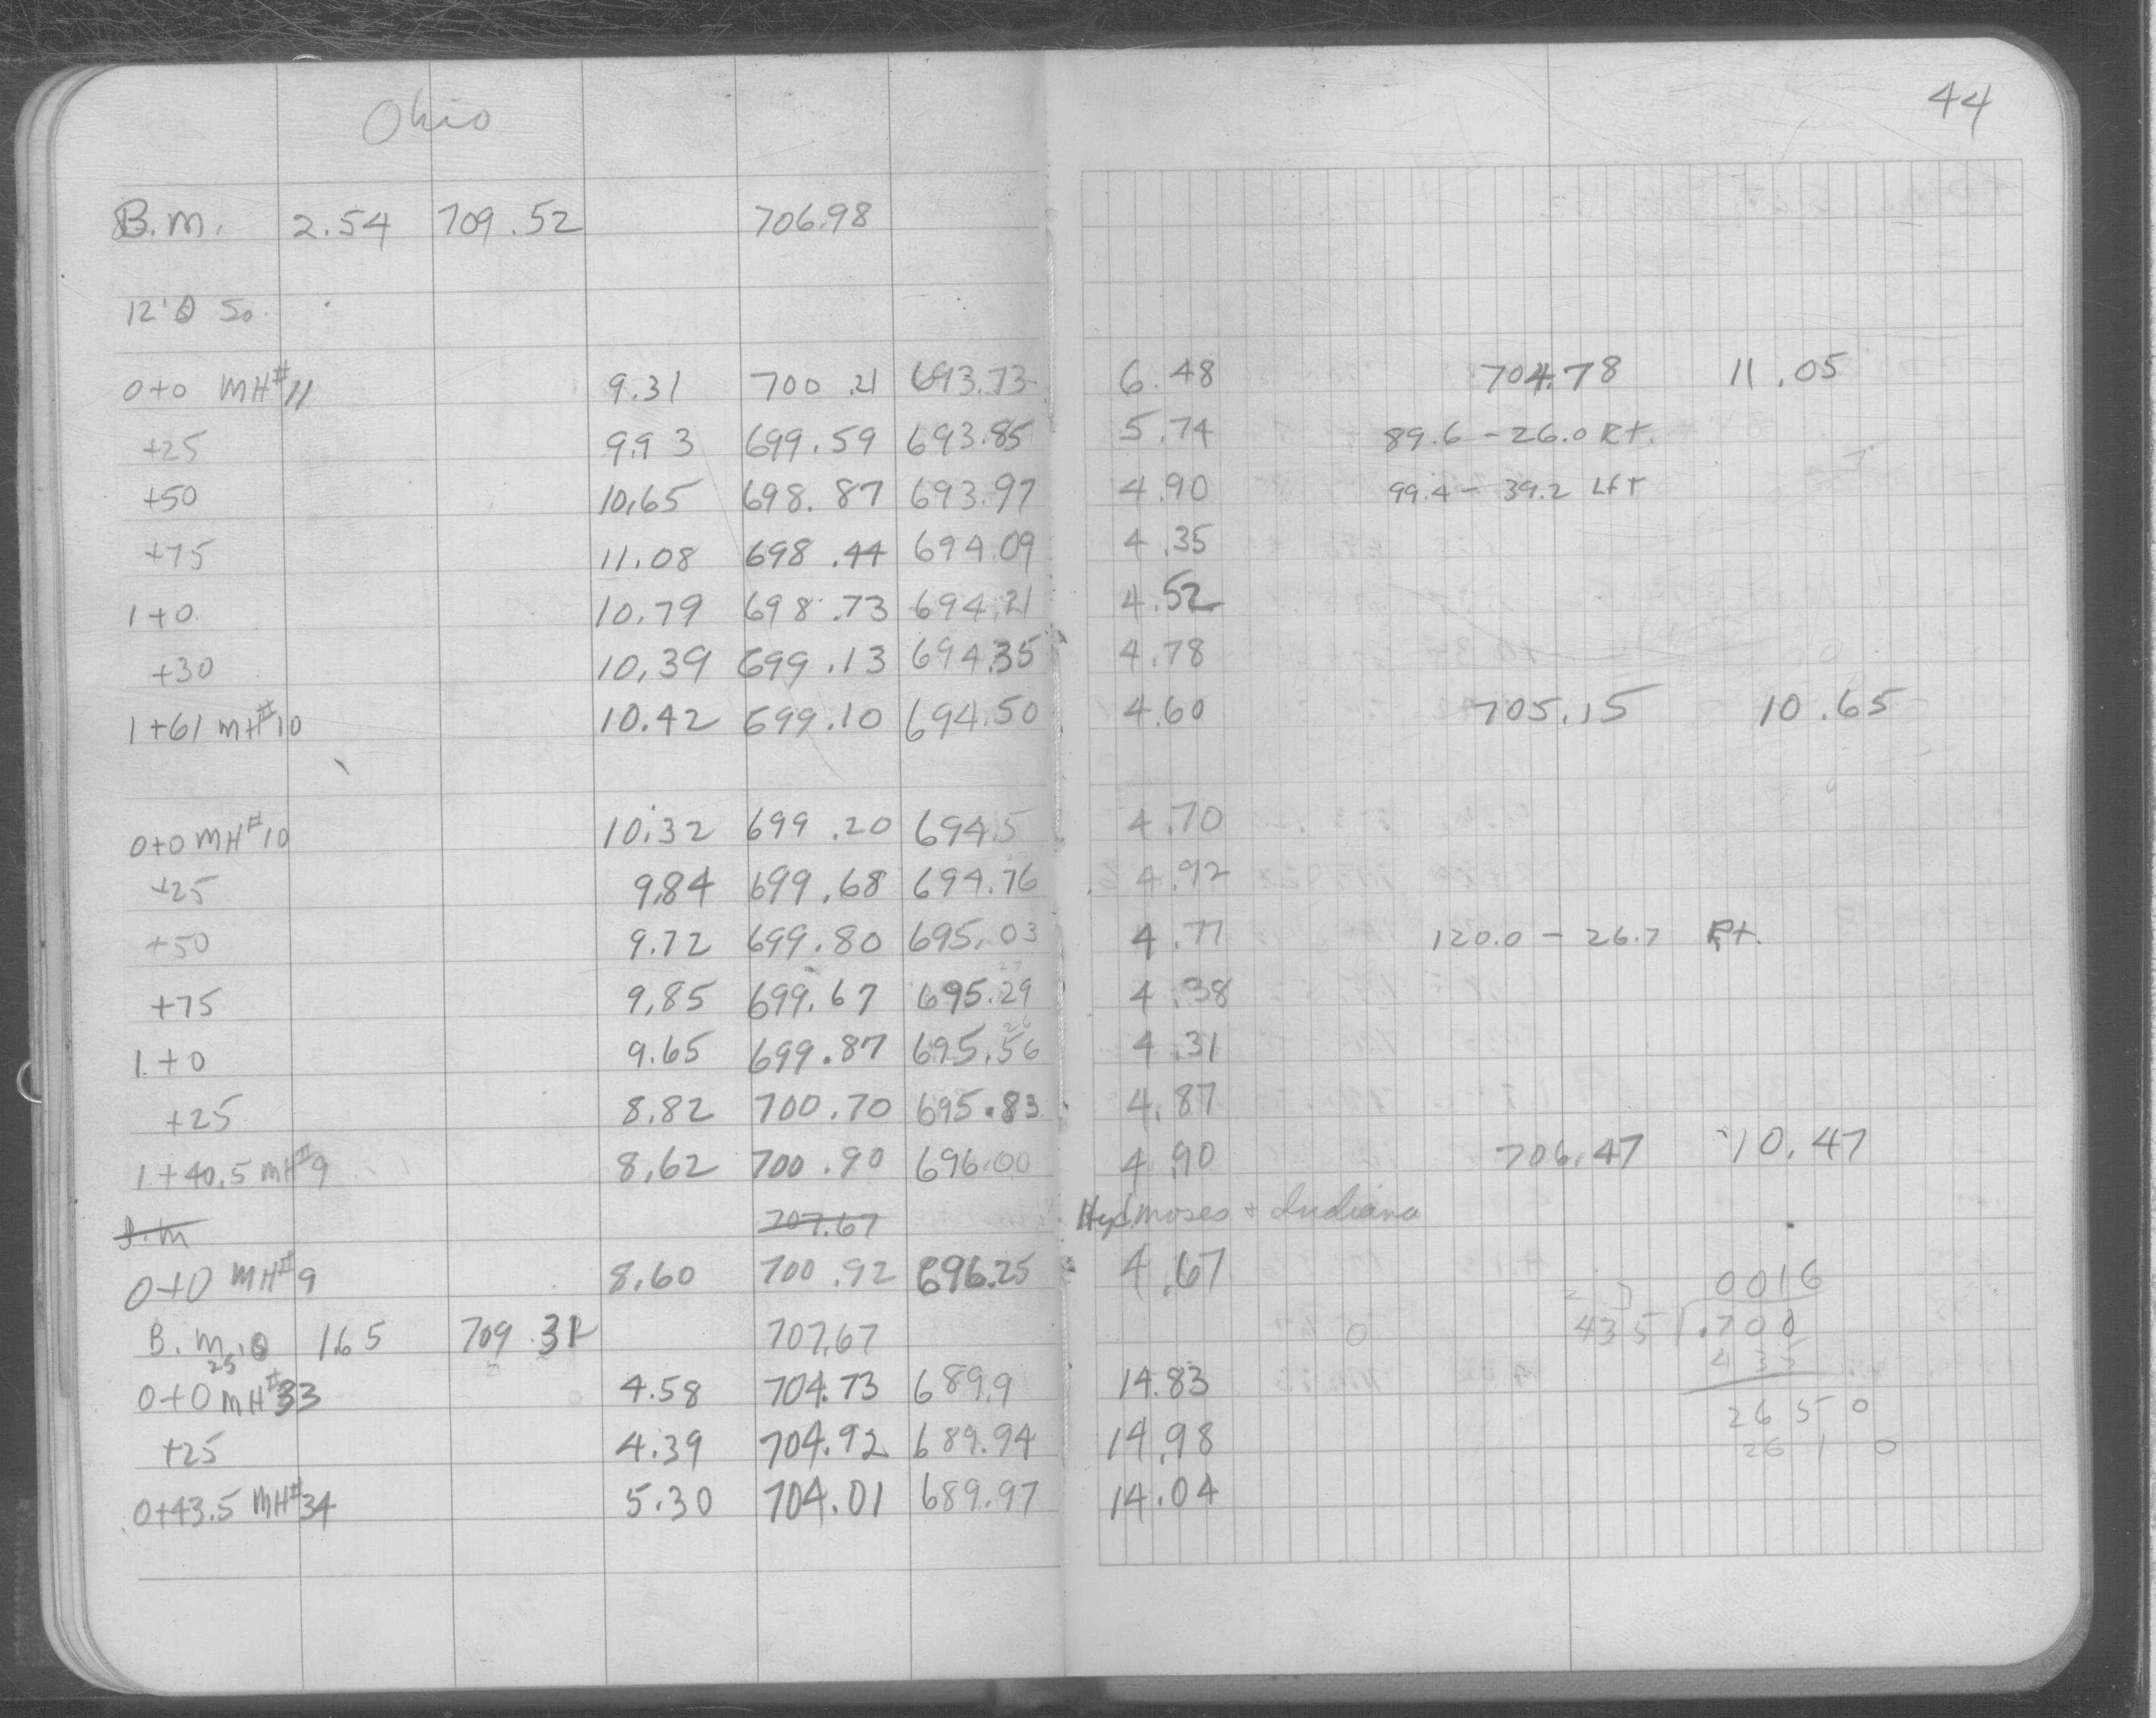 Ohio
44
B.M. 2.54 709.52 706.98
12' @ So.
0+0 MH#11 9.31 700.21 693.73 6.48 704.78 11.05
+25 9.93 699.59 693.85 5.74 89.6 - 26.0 Rt.
+50 10.65 698.87 693.97 4.90 99.4 - 39.2 Lft
+75 11.08 698.44 694.09 4.35
1+0 10.79 698.73 694.21 4.52
+30 10.39 699.13 694.35 4.78
1+61 MH#10 10.42 699.10 694.50 4.60 705.15 10.65
0+0 MH#10 10.32 699.20 694.5 4.70
+25 9.84 699.68 694.76 4.92
+50 9.72 699.80 695.03 4.77 120.0 - 26.7 Rt.
+75 9.85 699.67 695.29 4.38
1+0 9.65 699.87 695.56 4.31
+25 8.82 700.70 695.83 4.87
1+40.5 MH#9 8.62 700.90 696.00 4.90 706.47 10.47
B.M 707.67 Hyd. Moses + Indiana
0+0 MH#9 8.60 700.92 696.25 4.67 0016
B.M. 1.65 709.31 707.67 435 .700
25 435
0+0 MH#33 4.58 704.73 689.9 14.83 2650
+25 4.39 704.92 689.94 14.98 2610
0+43.5 MH#34 5.30 704.01 689.97 14.04